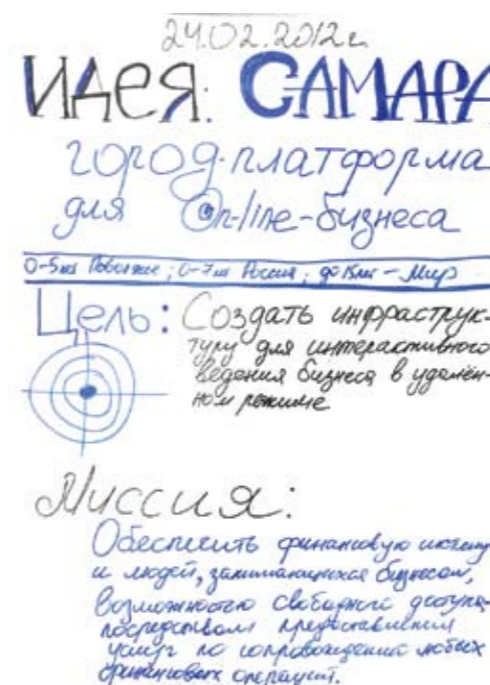 24.02.2012г.
ИДЕЯ: САМАРА
город-платформа
для On-line-бизнеса
0-5 Поволжье; 0-7 Россия; до 15 - Мир
Цель: Создать инфраструк-
туру для интерактивного
ведения бизнеса в удалён-
ном режиме
Миссия:
Обеспечить финансовую
и людей, занимающихся бизнесом,
возможностью свободного доступа
посредством предоставления
услуг по сопровождению любых
финансовых операций.